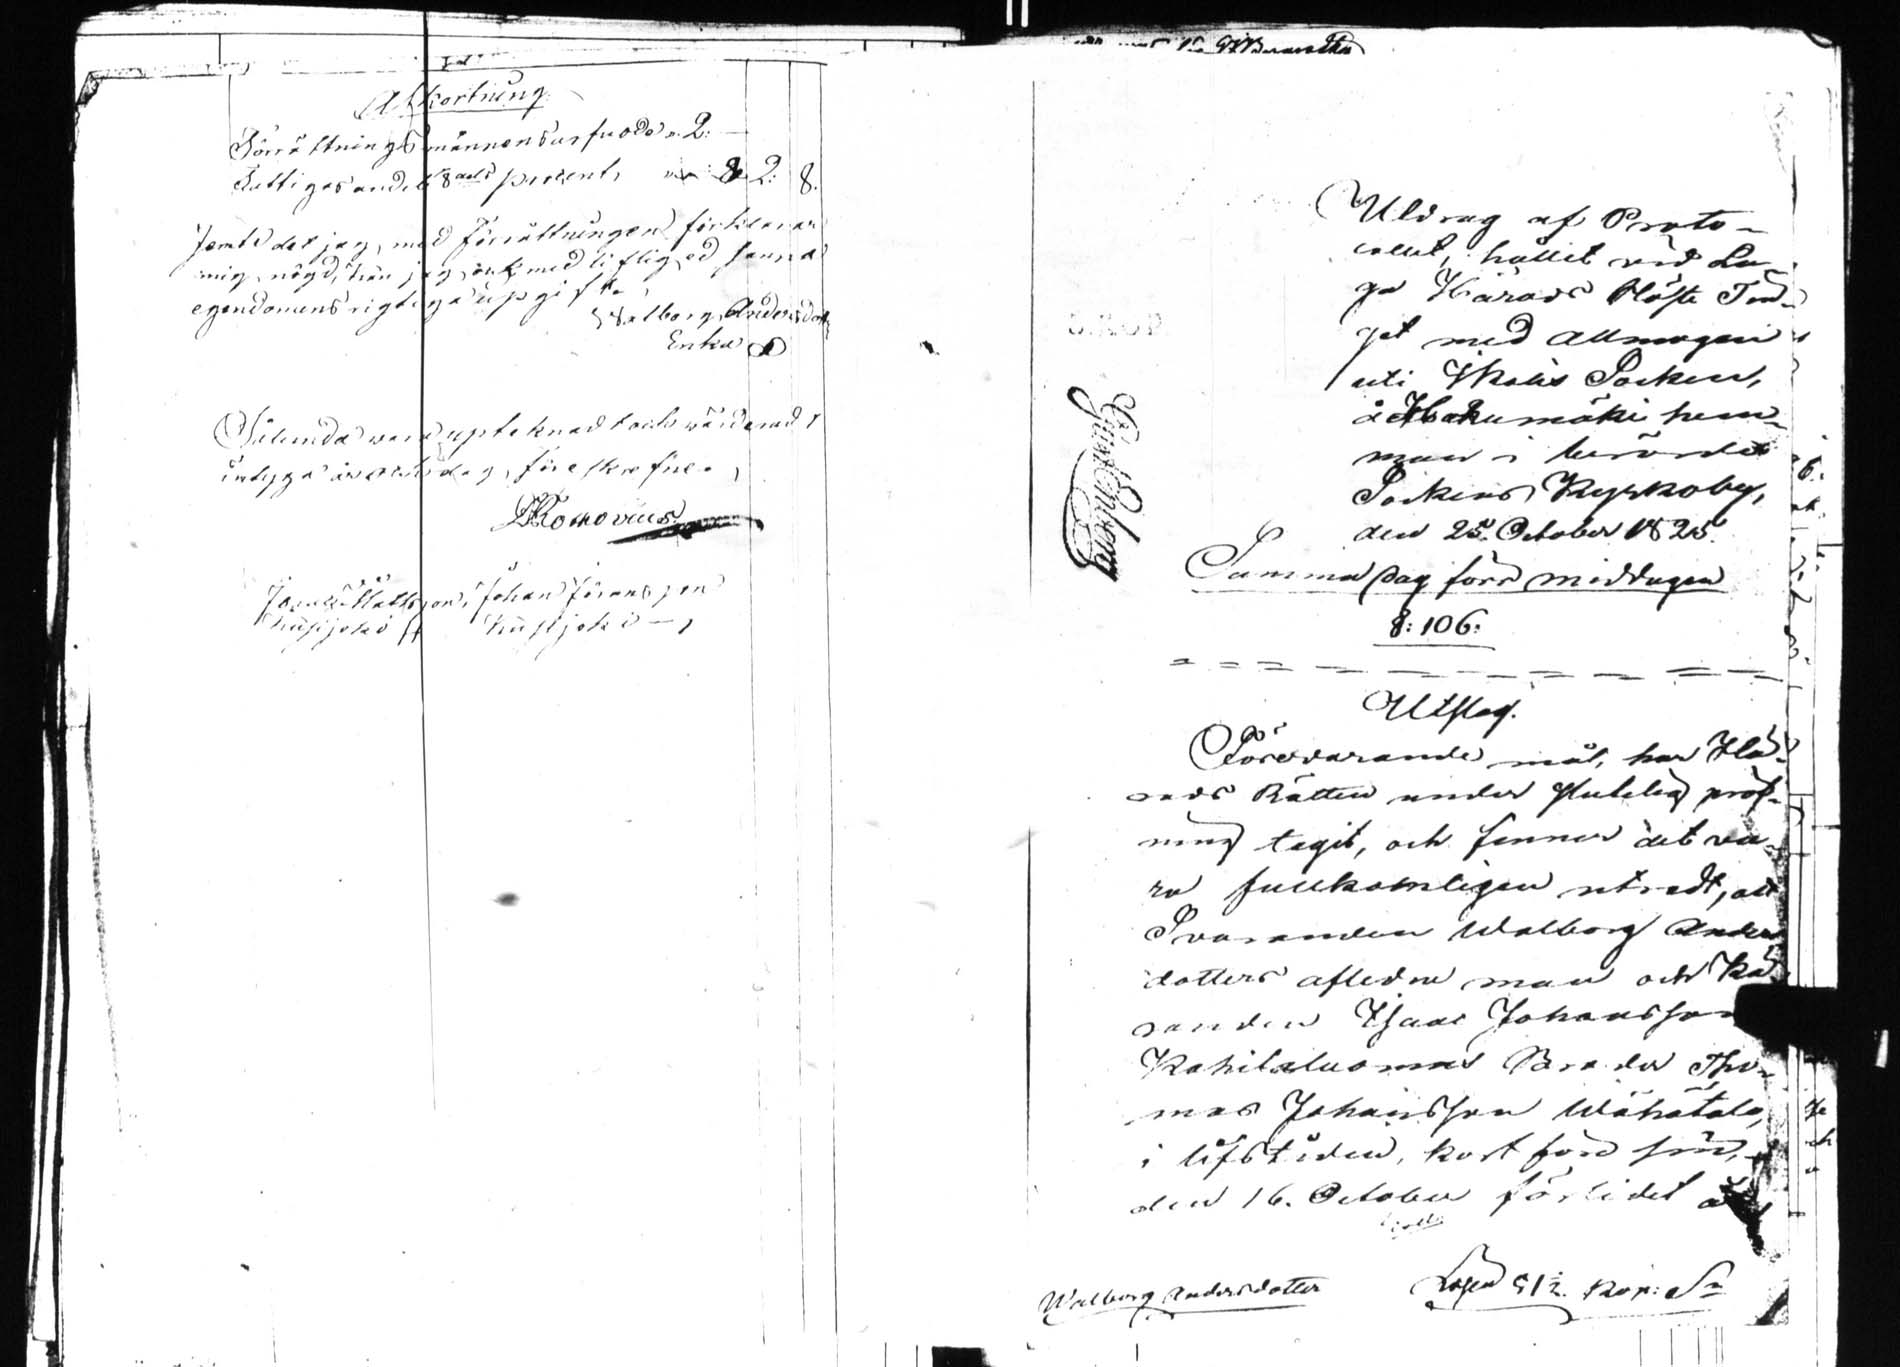 Afkortning
Förrättningsmännens arfvode " 2: —
Fattiges andel 8dels procent 2: 8.
Jemte det jag, med förrättningen förklarar
mig nögd, kan jag ock med liflig ed sanna
egendomens rigtiga upgift.
Walborg Andersdotter
Enka
Sålunda vara uptecknadt och värderadt
intyga år och dag,föreskrefne.
Johan Göransson
Uldrag af Proto-
collet, hållit vid La-
ga Härads Höste Tin-
get med Allmogen
uti Ikalis Socken,
å Hakumäki hem-
man i berörde
Sockens Kyrkoby,
den 25. October 1825.
Samma dag förr middagen
§: 106:
Utslag.
Förevarande mål, har Hä-
rads Rätten under skälig pröf-
ning tagit, och finner det va-
ra fullkomligen utredt, att
Svaranden Walborg Anders
dotters afledne man och Kä-
randen Isaac Johansson
Kahilaluomas Broder Tho-
mas Johansson Wähätalo,
i lifstiden, kort före sin,
den 16. October förlidet år
Walborg Andersdotter
Lösen 51½ Kop: Sr